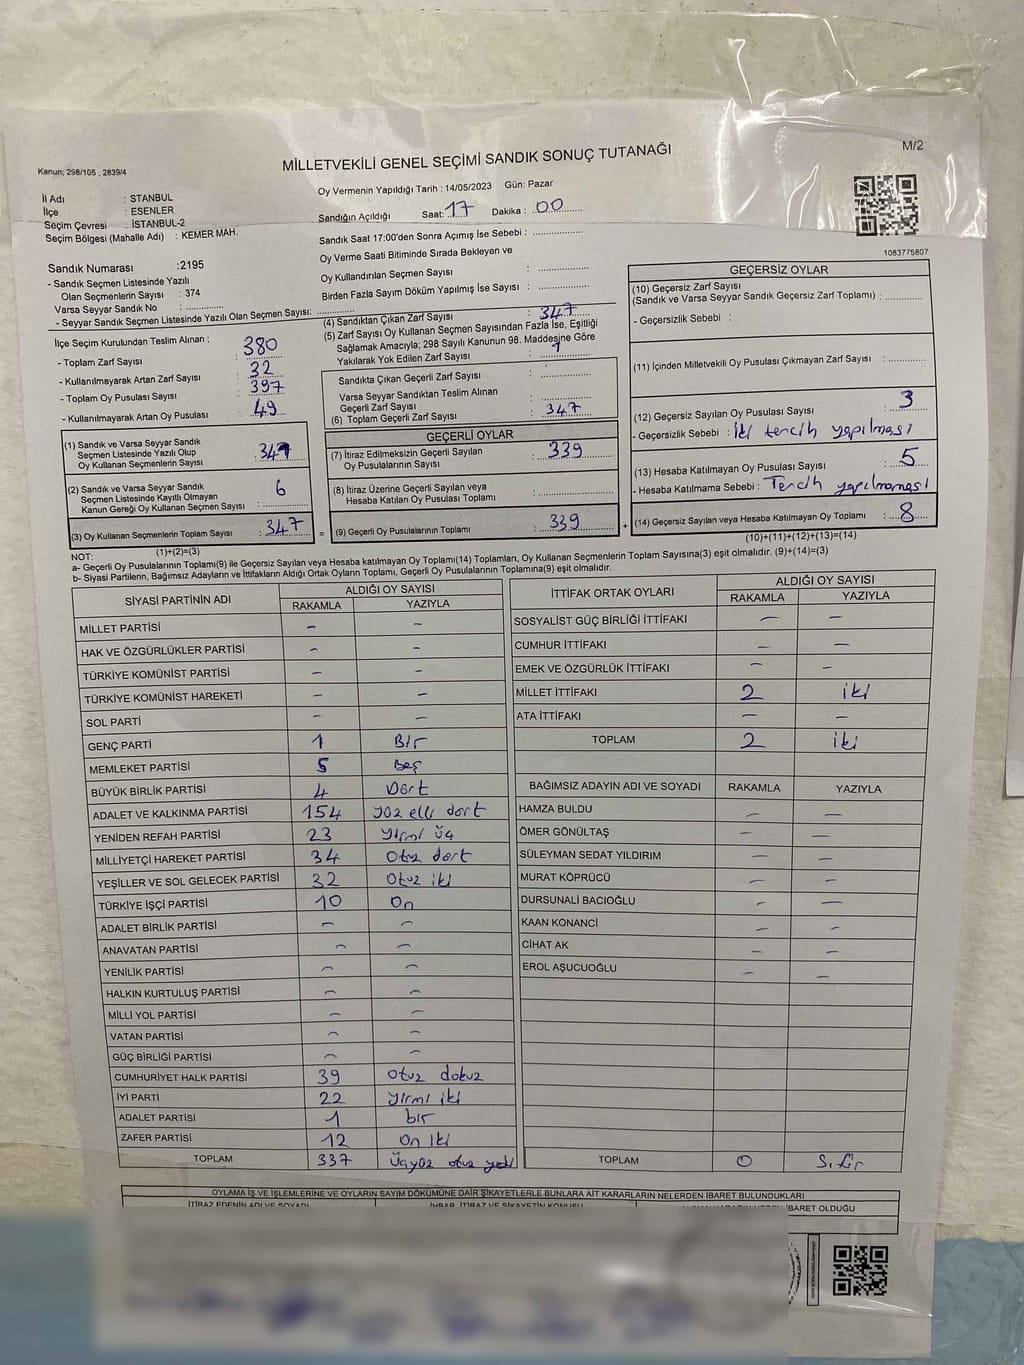 MİLLETVEKİLİ GENEL SEÇİMİ SANDIK SONUÇ TUTANAĞI
M/2
Kanun; 298/105 , 2839/4
İl Adı : STANBUL
İlçe : ESENLER
Seçim Çevresi : İSTANBUL-2
Seçim Bölgesi (Mahalle Adı) : KEMER MAH.
Oy Vermenin Yapıldığı Tarih : 14/05/2023 Gün: Pazar
Sandığın Açıldığı Saat: 17 Dakika : 00
Sandık Saat 17:00'den Sonra Açımış İse Sebebi :
Oy Verme Saati Bitiminde Sırada Bekleyen ve
Oy Kullandırılan Seçmen Sayısı :
Birden Fazla Sayım Döküm Yapılmış İse Sayısı :
1083775807
Sandık Numarası :2195
- Sandık Seçmen Listesinde Yazılı
Olan Seçmenlerin Sayısı : 374
Varsa Seyyar Sandık No
- Seyyar Sandık Seçmen Listesinde Yazılı Olan Seçmen Sayısı:
İlçe Seçim Kurulundan Teslim Alınan ;
- Toplam Zarf Sayısı : 380
- Kullanılmayarak Artan Zarf Sayısı : 32
- Toplam Oy Pusulası Sayısı : 397
- Kullanılmayarak Artan Oy Pusulası : 49
(1) Sandık ve Varsa Seyyar Sandık
Seçmen Listesinde Yazılı Olup
Oy Kullanan Seçmenlerin Sayısı :
(2) Sandık ve Varsa Seyyar Sandık
Seçmen Listesinde Kayıtlı Olmayan
Kanun Gereği Oy Kullanan Seçmen Sayısı : 6
(3) Oy Kullanan Seçmenlerin Toplam Sayısı : 347
(1)+(2)=(3)
(4) Sandıktan Çıkan Zarf Sayısı : 347
(5) Zarf Sayısı Oy Kullanan Seçmen Sayısından Fazla İse, Eşitliği
Sağlamak Amacıyla; 298 Sayılı Kanunun 98. Maddesine Göre
Yakılarak Yok Edilen Zarf Sayısı :
Sandıkta Çıkan Geçerli Zarf Sayısı :
Varsa Seyyar Sandıktan Teslim Alınan
Geçerli Zarf Sayısı :
(6) Toplam Geçerli Zarf Sayısı : 347
GEÇERLİ OYLAR
(7) İtiraz Edilmeksizin Geçerli Sayılan
Oy Pusulalarının Sayısı : 339
(8) İtiraz Üzerine Geçerli Sayılan veya
Hesaba Katılan Oy Pusulası Toplamı :
= (9) Geçerli Oy Pusulalarının Toplamı : 339 +
GEÇERSİZ OYLAR
(10) Geçersiz Zarf Sayısı
(Sandık ve Varsa Seyyar Sandık Geçersiz Zarf Toplamı) :
- Geçersizlik Sebebi :
(11) İçinden Milletvekili Oy Pusulası Çıkmayan Zarf Sayısı :
(12) Geçersiz Sayılan Oy Pusulası Sayısı : 3
- Geçersizlik Sebebi : iki tercih yapılması
(13) Hesaba Katılmayan Oy Pusulası Sayısı : 5
- Hesaba Katılmama Sebebi : Tercih yapılmaması
(14) Geçersiz Sayılan veya Hesaba Katılmayan Oy Toplamı : 8
(10)+(11)+(12)+(13)=(14)
NOT:
a- Geçerli Oy Pusulalarının Toplamı(9) ile Geçersiz Sayılan veya Hesaba katılmayan Oy Toplamı(14) Toplamları, Oy Kullanan Seçmenlerin Toplam Sayısına(3) eşit olmalıdır. (9)+(14)=(3)
b- Siyasi Partilerin, Bağımsız Adayların ve İttifakların Aldığı Ortak Oyların Toplamı, Geçerli Oy Pusulalarının Toplamına(9) eşit olmalıdır.
SİYASİ PARTİNİN ADI ALDIĞI OY SAYISI
RAKAMLA YAZIYLA
MİLLET PARTİSİ - -
HAK VE ÖZGÜRLÜKLER PARTİSİ - -
TÜRKİYE KOMÜNİST PARTİSİ - -
TÜRKİYE KOMÜNİST HAREKETİ - -
SOL PARTİ - -
GENÇ PARTİ 1 Bir
MEMLEKET PARTİSİ 5 Beş
BÜYÜK BİRLİK PARTİSİ 4 Dört
ADALET VE KALKINMA PARTİSİ 154 yüz elli dört
YENİDEN REFAH PARTİSİ 23 yirmi üç
MİLLİYETÇİ HAREKET PARTİSİ 34 Otuz dört
YEŞİLLER VE SOL GELECEK PARTİSİ 32 Otuz iki
TÜRKİYE İŞÇİ PARTİSİ 10 On
ADALET BİRLİK PARTİSİ - -
ANAVATAN PARTİSİ - -
YENİLİK PARTİSİ - -
HALKIN KURTULUŞ PARTİSİ - -
MİLLİ YOL PARTİSİ - -
VATAN PARTİSİ - -
GÜÇ BİRLİĞİ PARTİSİ - -
CUMHURİYET HALK PARTİSİ 39 otuz dokuz
İYİ PARTİ 22 yirmi iki
ADALET PARTİSİ 1 bir
ZAFER PARTİSİ 12 On iki
TOPLAM 337 Üçyüz otuz yedi
İTTİFAK ORTAK OYLARI ALDIĞI OY SAYISI
RAKAMLA YAZIYLA
SOSYALİST GÜÇ BİRLİĞİ İTTİFAKI - -
CUMHUR İTTİFAKI - -
EMEK VE ÖZGÜRLÜK İTTİFAKI - -
MİLLET İTTİFAKI 2 iki
ATA İTTİFAKI - -
TOPLAM 2 iki
BAĞIMSIZ ADAYIN ADI VE SOYADI RAKAMLA YAZIYLA
HAMZA BULDU - -
ÖMER GÖNÜLTAŞ - -
SÜLEYMAN SEDAT YILDIRIM - -
MURAT KÖPRÜCÜ - -
DURSUNALİ BACIOĞLU - -
KAAN KONANCİ - -
CİHAT AK - -
EROL AŞUCUOĞLU - -
TOPLAM 0 Sıfır
OYLAMA İŞ VE İŞLEMLERİNE VE OYLARIN SAYIM DÖKÜMÜNE DAİR ŞİKAYETLERLE BUNLARA AİT KARARLARIN NELERDEN İBARET BULUNDUKLARI
İTİRAZ EDENİN ADI VE SOYADI İHBAR, İTİRAZ VE ŞİKAYETİN KONUSU İBARET OLDUĞU